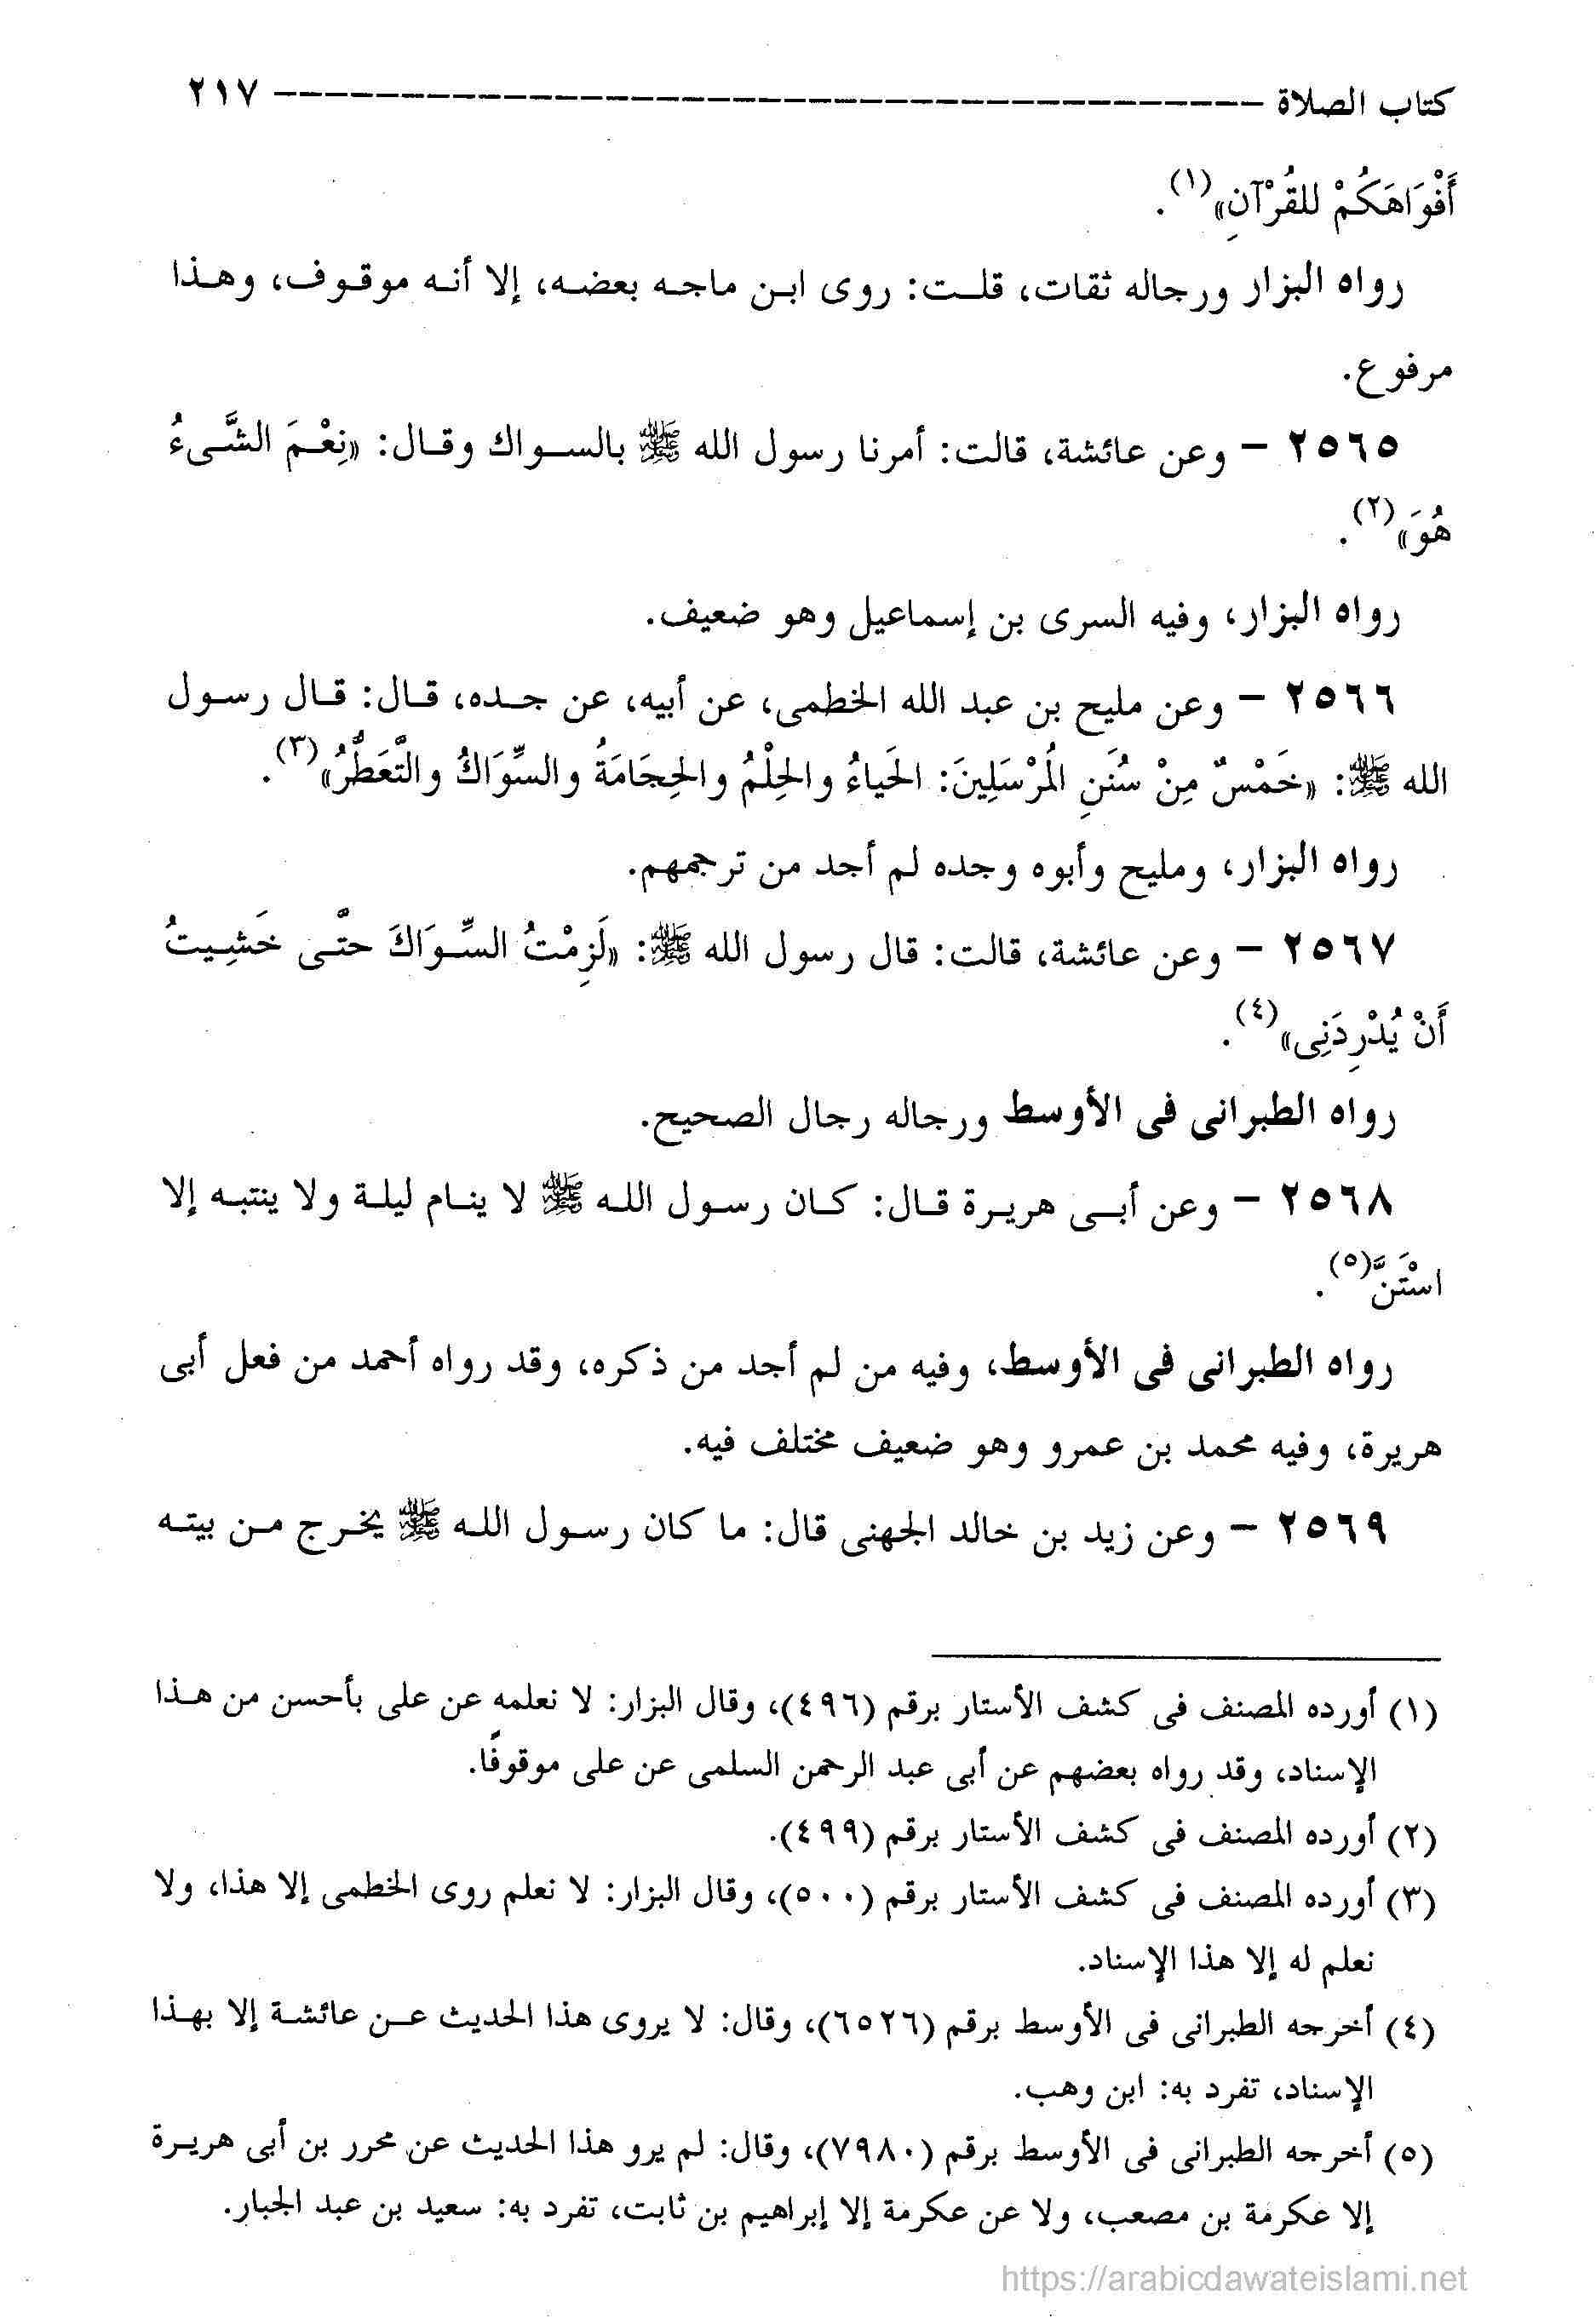 كتاب الصلاة ---------------------------------------- ٢١٧
أَفْوَاهَكُمْ للقُرْآنِ»(١).
رواه البزار ورجاله ثقات، قلت: روى ابن ماجه بعضه، إلا أنه موقوف، وهذا
مرفوع.
٢٥٦٥ - وعن عائشة، قالت: أمرنا رسول الله ﷺ بالسواك وقال: «نِعْمَ الشَّىءُ
هُوَ»(٢).
رواه البزار، وفيه السرى بن إسماعيل وهو ضعيف.
٢٥٦٦ - وعن مليح بن عبد الله الخطمى، عن أبيه، عن جده، قال: قال رسول
الله ﷺ: «خَمْسٌ مِنْ سُنَنِ المُرْسَلِينَ: الحَياءُ والحِلْمُ والحِجَامَةُ والسِّوَاكُ والتَّعَطُّرُ»(٣).
رواه البزار، ومليح وأبوه وجده لم أجد من ترجمهم.
٢٥٦٧ - وعن عائشة، قالت: قال رسول الله ﷺ: «لَزِمْتُ السِّوَاكَ حتَّى خَشِيتُ
أَنْ يُدْرِدَنِى»(٤).
رواه الطبرانى فى الأوسط ورجاله رجال الصحيح.
٢٥٦٨ - وعن أبى هريرة قال: كان رسول الله ﷺ لا ينام ليلة ولا ينتبه إلا
اسْتَنَّ(٥).
رواه الطبرانى فى الأوسط، وفيه من لم أجد من ذكره، وقد رواه أحمد من فعل أبى
هريرة، وفيه محمد بن عمرو وهو ضعيف مختلف فيه.
٢٥٦٩ - وعن زيد بن خالد الجهنى قال: ما كان رسول الله ﷺ يخرج من بيته
(١) أورده المصنف فى كشف الأستار برقم (٤٩٦)، وقال البزار: لا نعلمه عن على بأحسن من هذا
الإسناد، وقد رواه بعضهم عن أبى عبد الرحمن السلمى عن على موقوفًا.
(٢) أورده المصنف فى كشف الأستار برقم (٤٩٩).
(٣) أورده المصنف فى كشف الأستار برقم (٥٠٠)، وقال البزار: لا نعلم روى الخطمى إلا هذا، ولا
نعلم له إلا هذا الإسناد.
(٤) أخرجه الطبرانى فى الأوسط برقم (٦٥٢٦)، وقال: لا يروى هذا الحديث عن عائشة إلا بهذا
الإسناد، تفرد به: ابن وهب.
(٥) أخرجه الطبرانى فى الأوسط برقم (٧٩٨٠)، وقال: لم يرو هذا الحديث عن محرر بن أبى هريرة
إلا عكرمة بن مصعب، ولا عن عكرمة إلا إبراهيم بن ثابت، تفرد به: سعيد بن عبد الجبار.
https://arabicdawateislami.net